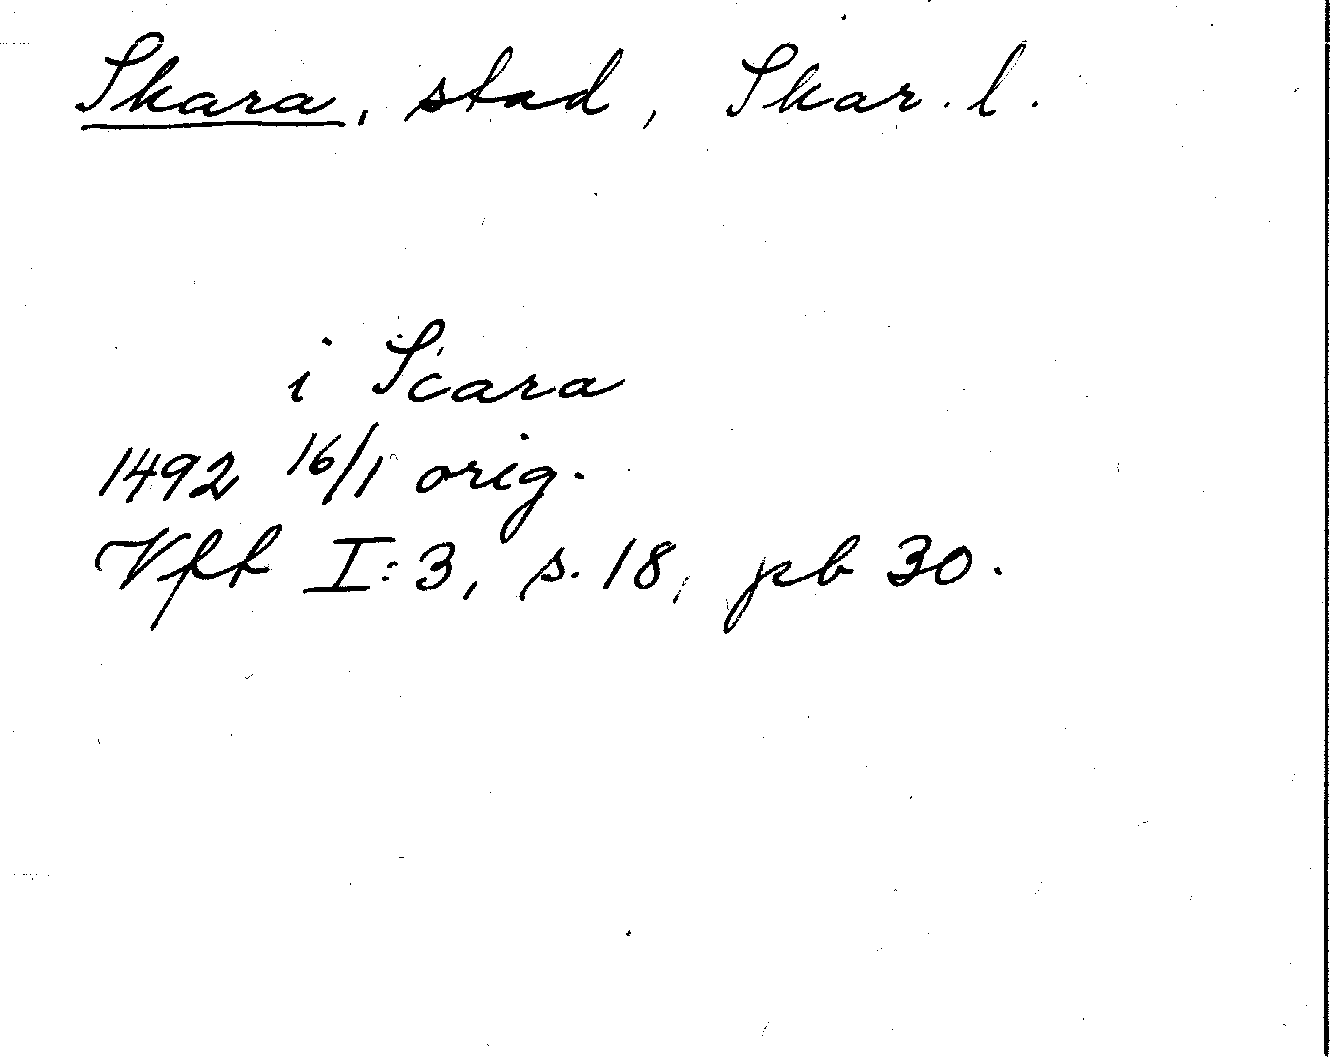 Skara, stad, Skar. l.
i Scara
1492 16/1 orig.
Vfft I:3, s. 18, pb 30.